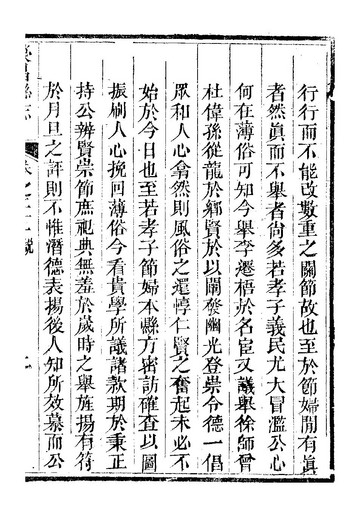 行行而不能改數重之關節故也至於節婦閒有眞
者然眞而不舉者尙多若孝子義民尤大冒濫公心
何在薄俗可知今舉李遷梧於名宦又議舉徐師曾
杜偉孫從龍於鄕賢於以闡發幽光登崇令德一倡
眾和人心翕然則風俗之還惇仁賢之奮起未必不
始於今日也至若孝子節婦本縣方密訪確查以圖
振刷人心挽回薄俗今看貴學所議諸款期於秉正
持公辨賢崇節庶祀典無羞於歲時之舉旌揚有符
於月旦之評則不惟潛德表揚後人知所效慕而公